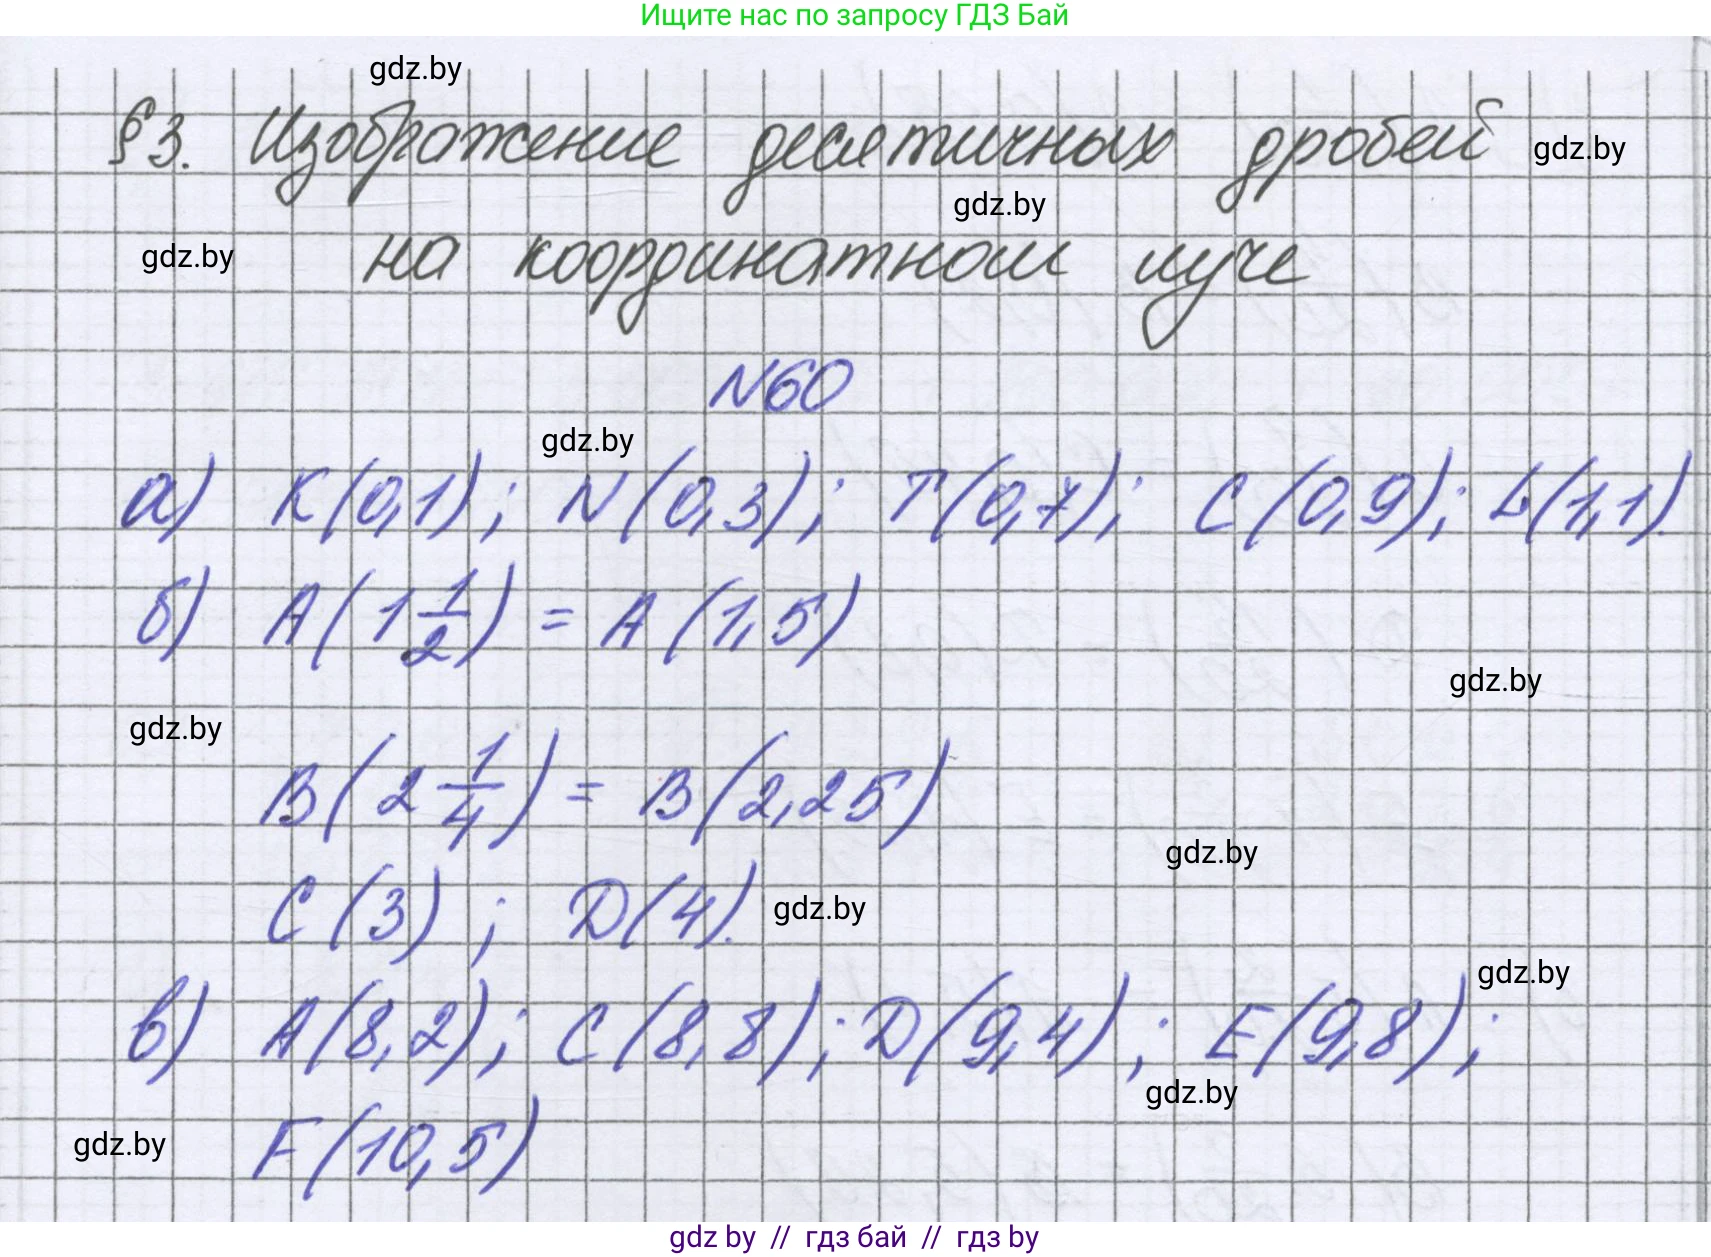 Ищите нас по запросу ГДЗ Бай
gdz.by
§3. Изображение десятичных дробей
gdz.by
gdz.by
на координатном луче
gdz.by
№60
gdz.by
а) K(0,1); N(0,3); T(0,7); C(0,9); L(1,1).
б) A(1 1/2) = A(1,5)
gdz.by
gdz.by
B(2 1/4) = B(2,25)
gdz.by
C(3); D(4).
gdz.by
gdz.by
в) A(8,2); C(8,8); D(9,4); E(9,8);
gdz.by
gdz.by
F(10,5)
gdz by // гдз бай // гдз by